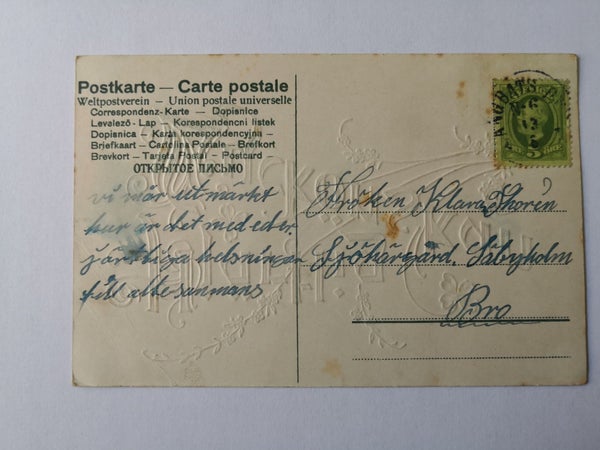 Postkarte — Carte postale
Weltpostverein — Union postale universelle
Correspondenz-Karte — Dopisnice
Levelező-Lap — Korespondencni listek
Dopisnica — Karta korespondencyjna —
Briefkaart — Cartolina Postale — Brefkort
Brevkort — Tarjeta Postal — Postcard
ОТКРЫТОЕ ПИСЬМО
vi mår utmärkt
hur är det med eder
järtliga helsningar
till allesammans
Fröken Klara Thorén
Sjökärgård, Säbyholm
Bro
5